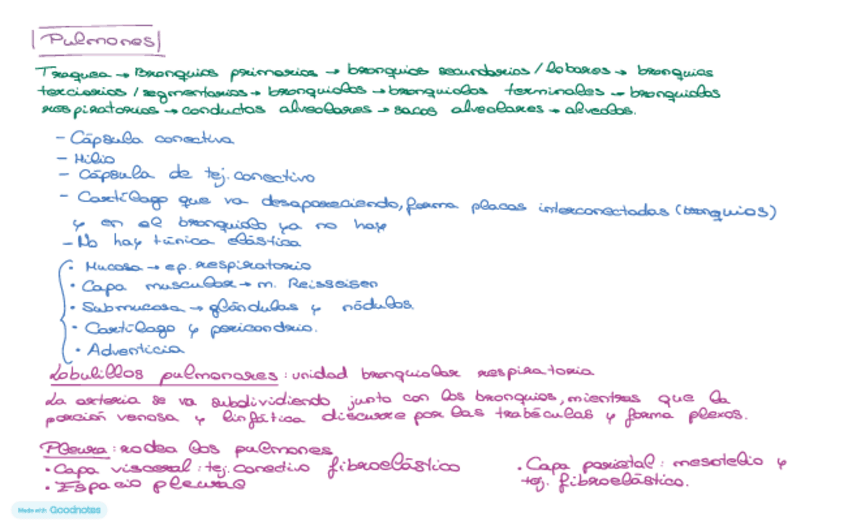 Pulmones
Traquea → Bronquios primarios → bronquios secundarios / lobares → bronquios
terciarios / segmentarios → bronquiolos → bronquiolos terminales → bronquiolos
respiratorios → conductos alveolares → sacos alveolares → alveolos.
- Cápsula conectiva
- Hilio
- Cápsula de tej. conectivo
- Cartílago que va desapareciendo, forma placas interconectadas (bronquios)
y en el bronquiolo ya no hay
- No hay túnica elástica
· Mucosa → ep. respiratorio
· Capa muscular → m. Reisseisen
· Submucosa → glándulas y nódulos.
· Cartílago y pericondrio.
· Adventicia
Lobulillos pulmonares : unidad bronquiolar respiratoria
La arteria se va subdividiendo junto con los bronquios, mientras que la
porción venosa y linfática discurre por las trabéculas y forma plexos.
Pleura : rodea los pulmones
· Capa visceral : tej. conectivo fibroelástico
· Espacio pleural
· Capa parietal : mesotelio y
tej. fibroelástico.
Made with Goodnotes